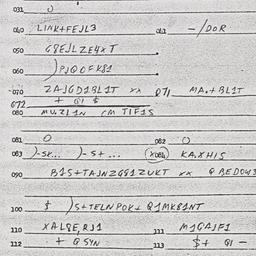 031 U
040 LINK+FEJL3 041 -/DOR
050 G8EJLZE4xT
060 )PJQOFK81
070 ZAJGD1BL1T xx 071 MA.+BL1T
072 + QI $
080 MUZL1N CM TIF1S
081 O 082 O
083 )-SK... )-S+... X084 KA.XHIS
090 B1S+TAJNZGS1ZUKT xx QBEDO43
100 $ )S+TELNPOK+ Q1MK81NT
110 XALQE,RJ1 111 M1GAJF1
112 + QSYN 113 $+ QI -